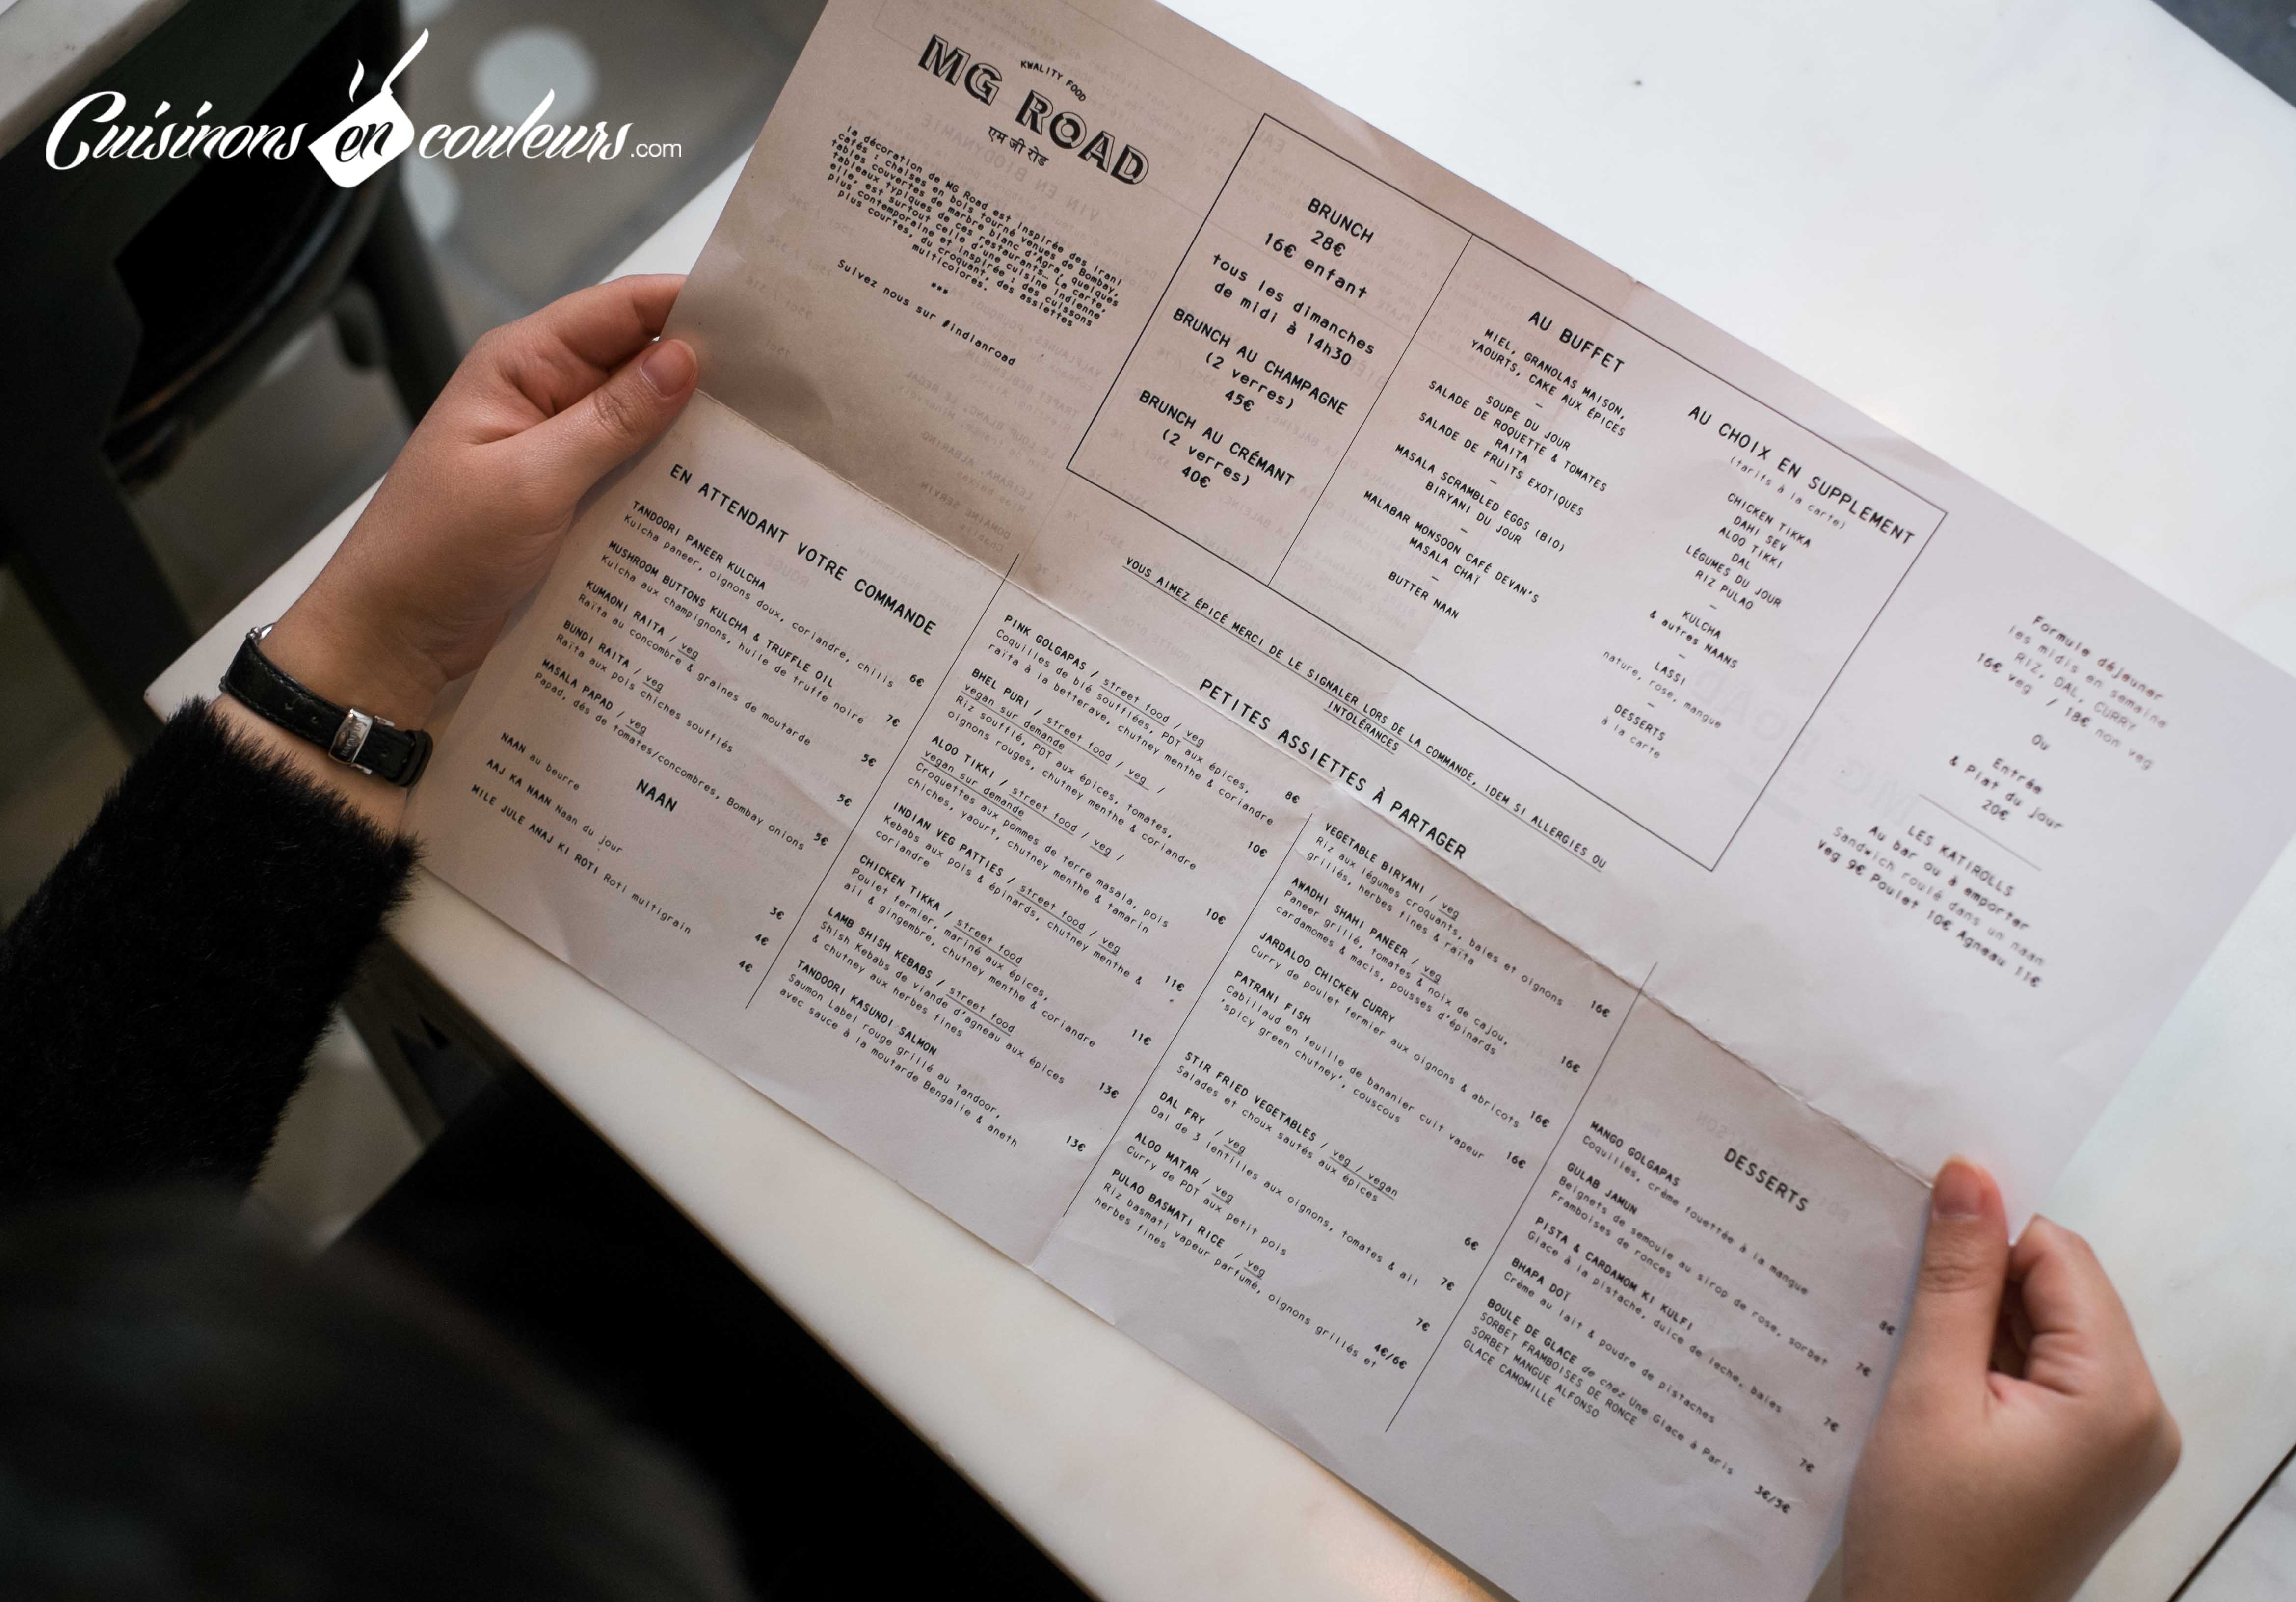 Cuisinons en couleurs.com
KWALITY FOOD
MG ROAD
एम जी रोड
la décoration de MG Road est inspirée des irani
cafés : chaises en bois tourné venues de Bombay,
tables couvertes de marbre blanc d'Agra, quelques
tableaux typiques de ces restaurants… La carte,
elle, est surtout celle d'une cuisine indienne
plus contemporaine et inspirée : des cuissons
plus courtes, du croquant, des assiettes
multicolores.
***
Suivez nous sur #indianroad
BRUNCH
28€
16€ enfant
tous les dimanches
de midi à 14h30
BRUNCH AU CHAMPAGNE
(2 verres)
45€
BRUNCH AU CRÉMANT
(2 verres)
40€
AU BUFFET
MIEL, GRANOLAS MAISON,
YAOURTS, CAKE AUX ÉPICES
–
SOUPE DU JOUR
SALADE DE ROQUETTE & TOMATES
RAITA
SALADE DE FRUITS EXOTIQUES
–
MASALA SCRAMBLED EGGS (BIO)
BIRYANI DU JOUR
–
MALABAR MONSOON CAFÉ DEVAN'S
MASALA CHAÏ
–
BUTTER NAAN
AU CHOIX EN SUPPLEMENT
(tarifs à la carte)
CHICKEN TIKKA
DAHI SEV
ALOO TIKKI
DAL
LÉGUMES DU JOUR
RIZ PULAO
–
KULCHA
& autres NAANS
–
LASSI
nature, rose, mangue
–
DESSERTS
à la carte
Formule déjeuner
les midis en semaine
RIZ, DAL, CURRY
16€ veg / 18€ non veg
Ou
Entrée
& Plat du jour
20€
LES KATIROLLS
Au bar ou à emporter
Sandwich roulé dans un naan
Veg 9€ Poulet 10€ Agneau 11€
VOUS AIMEZ ÉPICÉ MERCI DE LE SIGNALER LORS DE LA COMMANDE, IDEM SI ALLERGIES OU
INTOLÉRANCES
EN ATTENDANT VOTRE COMMANDE
TANDOORI PANEER KULCHA
Kulcha paneer, oignons doux, coriandre, chilis 6€
MUSHROOM BUTTONS KULCHA & TRUFFLE OIL
Kulcha aux champignons, huile de truffe noire 7€
KUMAONI RAITA / veg
Raïta au concombre & graines de moutarde 5€
BUNDI RAITA / veg
Raïta aux pois chiches soufflés 5€
MASALA PAPAD / veg
Papad, dés de tomates/concombres, Bombay onions 5€
NAAN
NAAN au beurre 3€
AAJ KA NAAN Naan du jour 4€
MILE JULE ANAJ KI ROTI Roti multigrain 4€
PETITES ASSIETTES À PARTAGER
PINK GOLGAPAS / street food / veg
Coquilles de blé soufflées, PDT aux épices,
raïta à la betterave, chutney menthe & coriandre 8€
BHEL PURI / street food / veg /
vegan sur demande
Riz soufflé, PDT aux épices, tomates,
oignons rouges, chutney menthe & coriandre 10€
ALOO TIKKI / street food / veg /
vegan sur demande
Croquettes aux pommes de terre masala, pois
chiches, yaourt, chutney menthe & tamarin 10€
INDIAN VEG PATTIES / street food / veg
Kebabs aux pois & épinards, chutney menthe &
coriandre 11€
CHICKEN TIKKA / street food
Poulet fermier, mariné aux épices,
ail & gingembre, chutney menthe & coriandre 11€
LAMB SHISH KEBABS / street food
Shish Kebabs de viande d'agneau aux épices
& chutney aux herbes fines 13€
TANDOORI KASUNDI SALMON
Saumon Label rouge grillé au tandoor,
avec sauce à la moutarde Bengalie & aneth 13€
VEGETABLE BIRYANI / veg
Riz aux légumes croquants, baies et oignons
grillés, herbes fines & raïta 16€
AWADHI SHAHI PANEER / veg
Paneer grillé, tomates & noix de cajou,
cardamomes & macis, pousses d'épinards 16€
JARDALOO CHICKEN CURRY
Curry de poulet fermier aux oignons & abricots 16€
PATRANI FISH
Cabillaud en feuille de bananier cuit vapeur
'spicy green chutney', couscous 16€
STIR FRIED VEGETABLES / veg / vegan
Salades et choux sautés aux épices 6€
DAL FRY / veg
Dal de 3 lentilles aux oignons, tomates & ail 7€
ALOO MATAR / veg
Curry de PDT aux petit pois 7€
PULAO BASMATI RICE / veg
Riz basmati vapeur parfumé, oignons grillés et
herbes fines 4€/6€
DESSERTS
MANGO GOLGAPAS
Coquilles, crème fouettée à la mangue 8€
GULAB JAMUN
Beignets de semoule au sirop de rose, sorbet
Framboises de ronces 7€
PISTA & CARDAMOM KI KULFI
Glace à la pistache, dulce de leche, baies 7€
BHAPA DOÏ
Crème au lait & poudre de pistaches 7€
BOULE DE GLACE de chez Une Glace à Paris
SORBET FRAMBOISES DE RONCE
SORBET MANGUE ALFONSO
GLACE CAMOMILLE 3€/5€